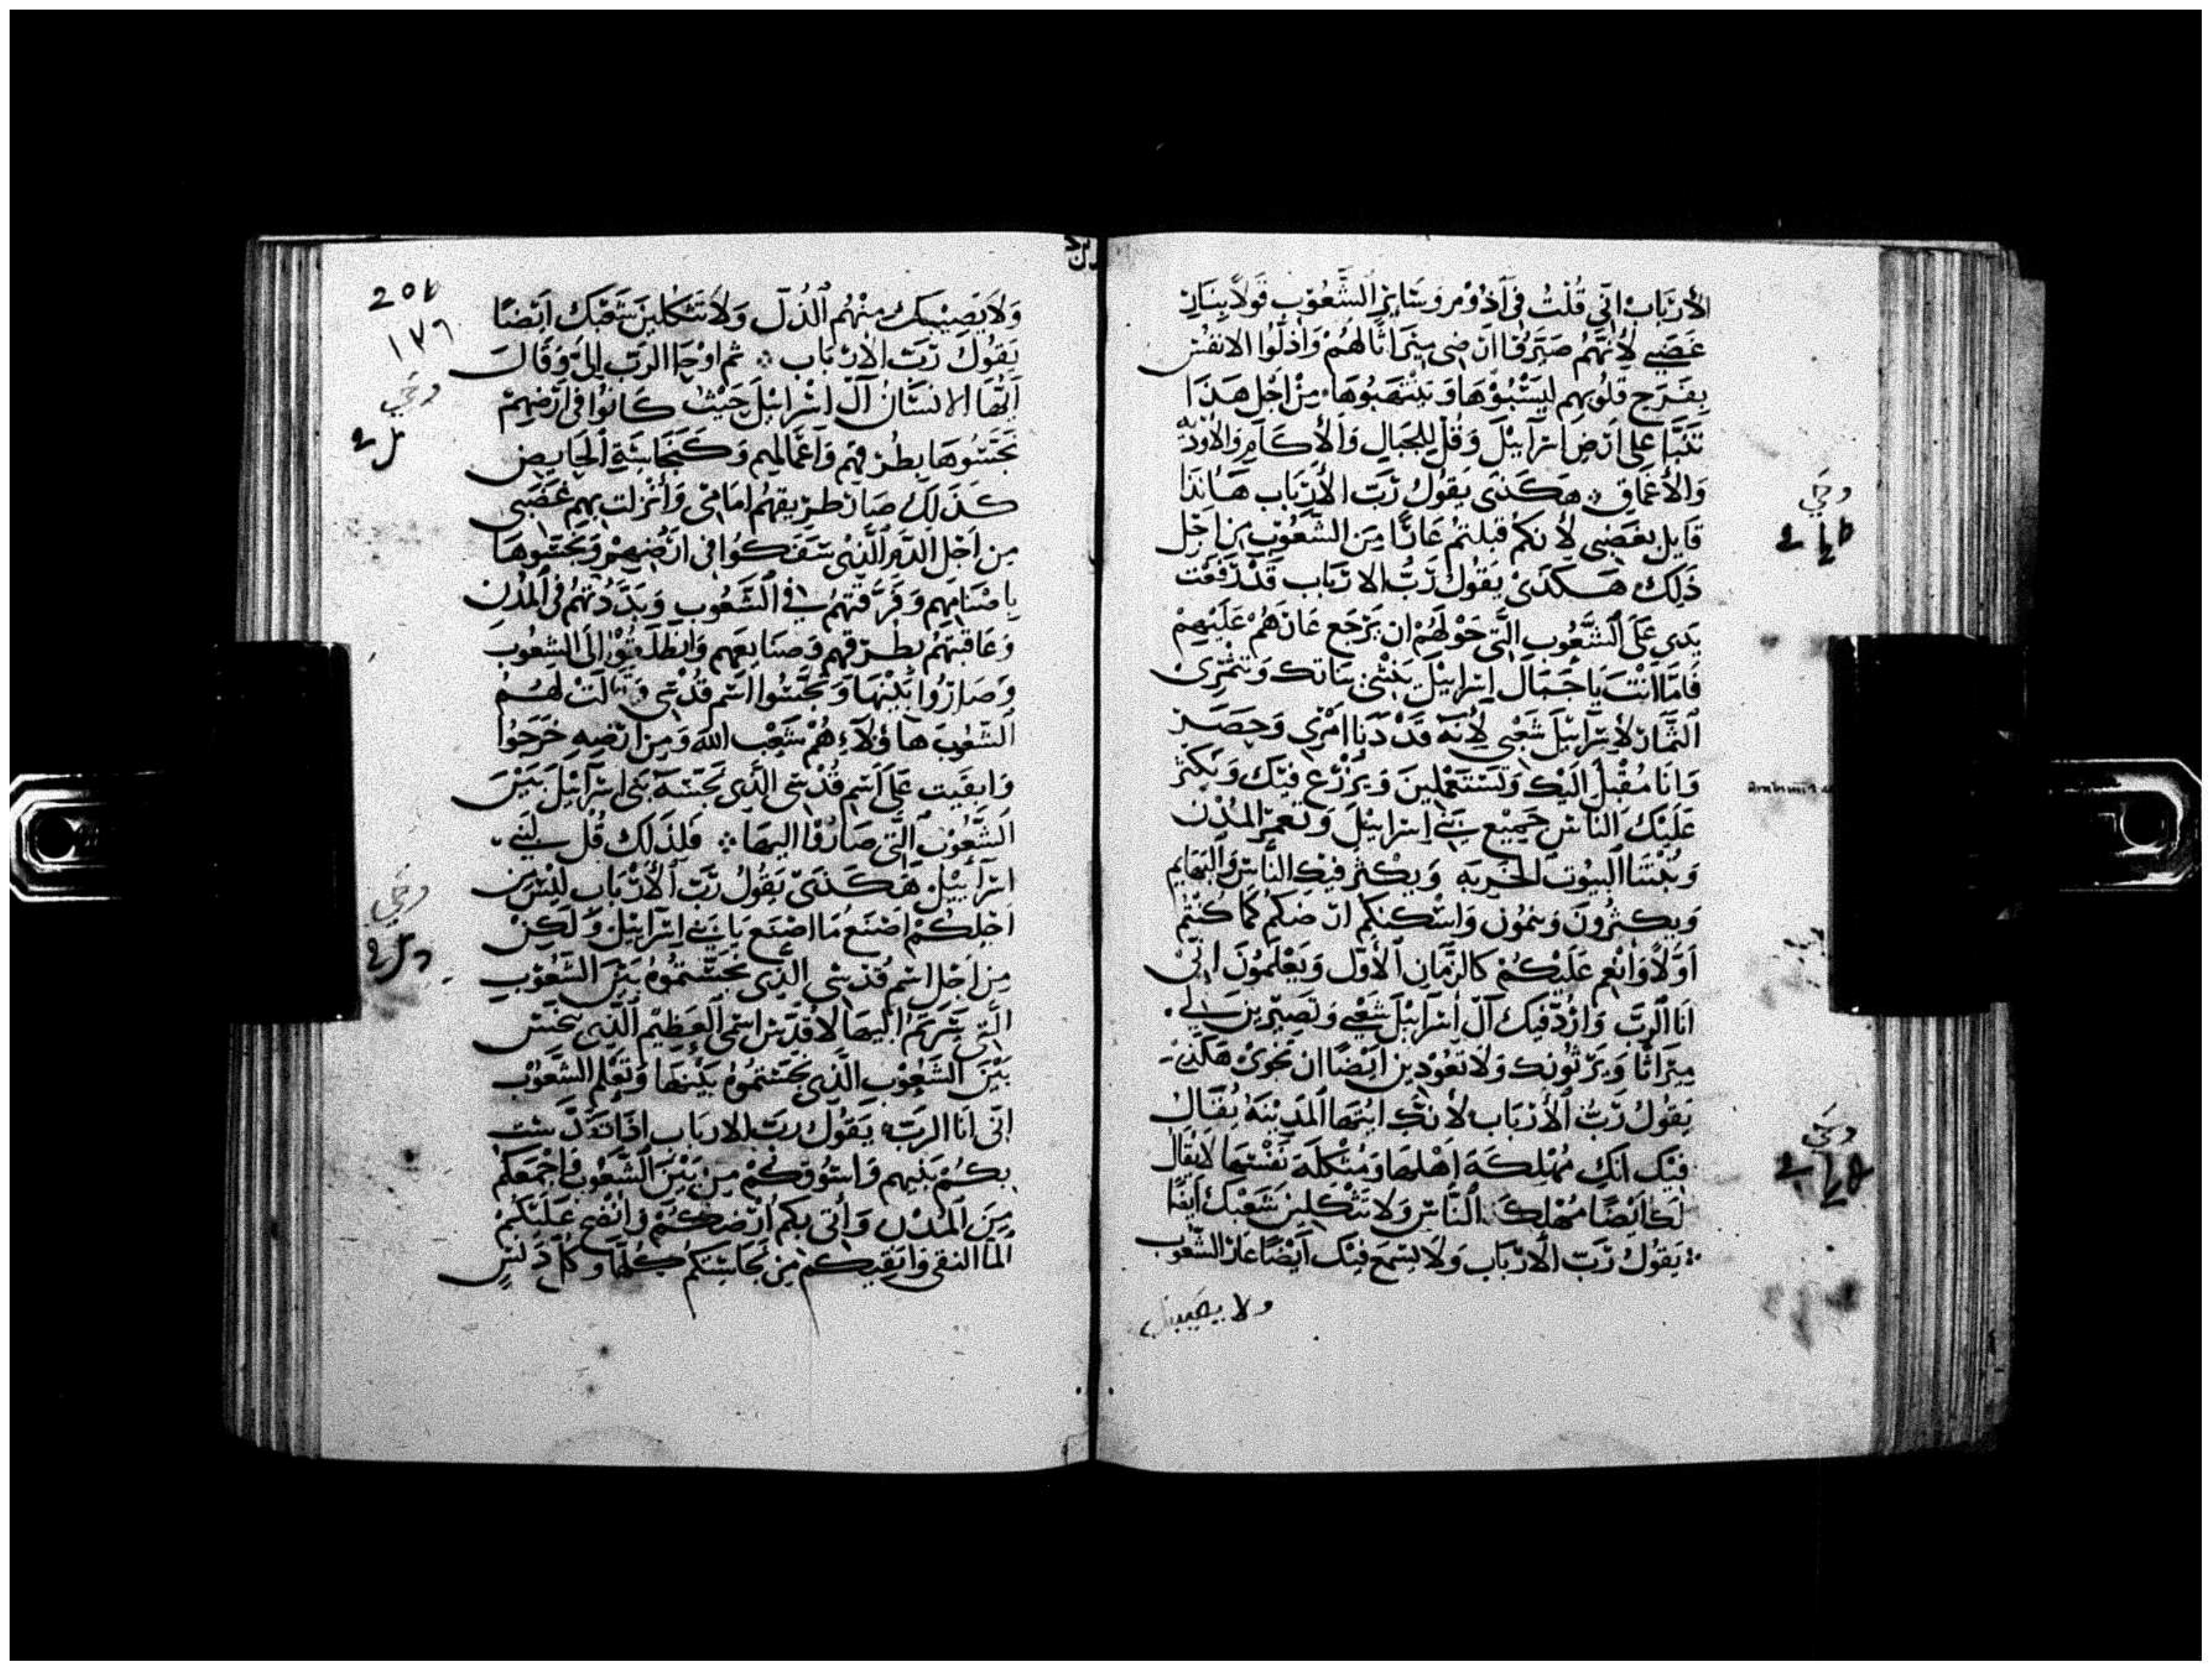 الأرْبَابْ اني قُلتُ في آذوْمر وَسَايِر الشَّعُوْبِ قَولاً بنار
غَضبي لأنَّهم صَيَّرُوا ارَاضى ميرَاثًا لهُمْ وَاذلّوا الانفسُ
بفَرح قلُوبهم ليَسْبُوْهَا وَينْتَهبُوهَا مِنْ اجْل هَذَا
تَنَبَّا عَلى ارَض اسرَايئلَ وَقُل للجبَال وَالأكَام وَالأودْيه
وَالأعَماق هَكذى يَقولُ رَّبّ الأرْبَاب هَانَذا
قَايل بغَضبى لأنكم قبلتمُ عَارًا مِنَ الشعُوْب من اجْل
ذَلِكَ هَكذَى يَقولُ رَّبُّ الارْبَاب قَدْ رَفعْت
يَدي عَلَى الشّعُوب الَّتى حَوْلهَمْ ان يَرْجَع عَارهَمْ عَلَيْهمْ
فَامَّا انْتَ يَا جبَال اسرَايئل ينشى نباتك وَتثمْري
الثمَار لإسرَايئل شَعْبي لأنهَ قَدْ دَنَا امْرى وَحضَر
وَانَا مُقْبل الَيْك وَتَسْتَعْملينَ وَيُزرَع فيَك وَيكثر
عَلَيْك النَّاسُ جَميْع بَني اسرَايئلَ وَتعمر المُدْن
وَتُبنَا البيُوت الخربَه وَيكثر فيك النَّاسُ وَالبهَايم
وَيكثرُونَ وَينمُون وَاسْكنكم ارْضكم كمَا كنتم
اوّلاً وَانْعِم عَليْكُمْ كالزَّمَان الأوَّل وَيَعْلَمُونَ اني
انَا الرَّبّ وَازرد فيك آل اسرَايئل شعْبي وَتصيرين لي
ميرَاثًا وَيَرثونك وَلا تَعُودين ايْضًا ان تحوى هكذى
يَقُولُ رَّبُّ الأرْبَاب لأنكِ ايتهَا المَدينة يُقَالُ
فيَك انكِ مُهْلِكة اهْلهَا وَمُثكلَة نفسهَا لا يقال
لك ايْضًا مُهْلكة النَّاسِ وَلا تثْكلِين شعْبك ايْضًا
يَقولُ رَّبّ الارْبَاب وَلا يسْمع فيك ايْضًا عَار الشعُوب
ولا يصيبك
205
١٧٦
وَلا يَصيبك مِنْهُم الذُلّ وَلا تَثْكلين شَعْبَك ايْضًا
يَقُولُ رَّبّ الارْبَاب ثم اوْحَا الرّب اليَّ وَقَالَ
ايُّهَا الانسَان آل اسرَايئلَ حَيْثُ كَانُوا فى ارْضهمْ
نَجَّسُوهَا بطُرقهم وَاعْمَالهم وَكَنجَاسَةِ الحَايض
كَذلكَ صَار طريقهُم امَامى وَانزلت بهم غضَبى
مِن اجْل الدَّم الَّذى سَفَكوُا فى ارضهمْ وَنجَّسُوهَا
باصنَامِهم وَفرَّقتهُم في الشعُوب وَبَدَّدْتهُم في المُدن
وَعَاقبتهُم بطرقهم وَصنَايعهم وَانطَلقُوْا الىَ الشعُوب
وَصَارُوا بَيْنهَا وَنجسُوا اسْم قُدْسى وقَالتْ لهُم
الشعُوبَ هَا هَؤلاءِ هُمْ شَعْب الله وَمِن ارْضهِ خرَجُوا
وَابقَيت عَلى اسم قُدْسى الَّذى نجسَهَ بَنى اسرَايئل بَيْنَ
الشّعُوب التى صَارُوا اليهَا فَلِذلك قُل لبَني
اسْرَايئل هَكذى يَقولُ رَّبّ الأرْبَاب ليْسَ مِن
اجْلِكُمْ اصْنَع مَا اصْنَع يَا بَني اسْرَايئلَ وَلكِنْ
مِن اجْل اسم قُدْسى الذي نجَّسْتموُهُ بَيْنَ الشعُوْب
الَّتى صرتم اليهَا لاقَدّسَ اسمى العَظِيم الَّذي نجس
بَيْنَ الشعُوْب الَّذى نجستموُهُ بَيْنهَا وَتَعْلم الشعُوْب
انى انَا الرَّب يَقُول ربّ الارباب اذَا تقَدَّسْت
بكُمْ بَيْنهم وَاسُوقكُمْ مِنْ بَيْنَ الشعُوب وَاجْمَعكم
مِنَ المُدْن وَاتى بكم ارْضكم وَانضح عَلَيْكُمُ
المَا النقى وَانقيكم مِن نجَاسَتكم كلهَا وَكل دَنسٍ